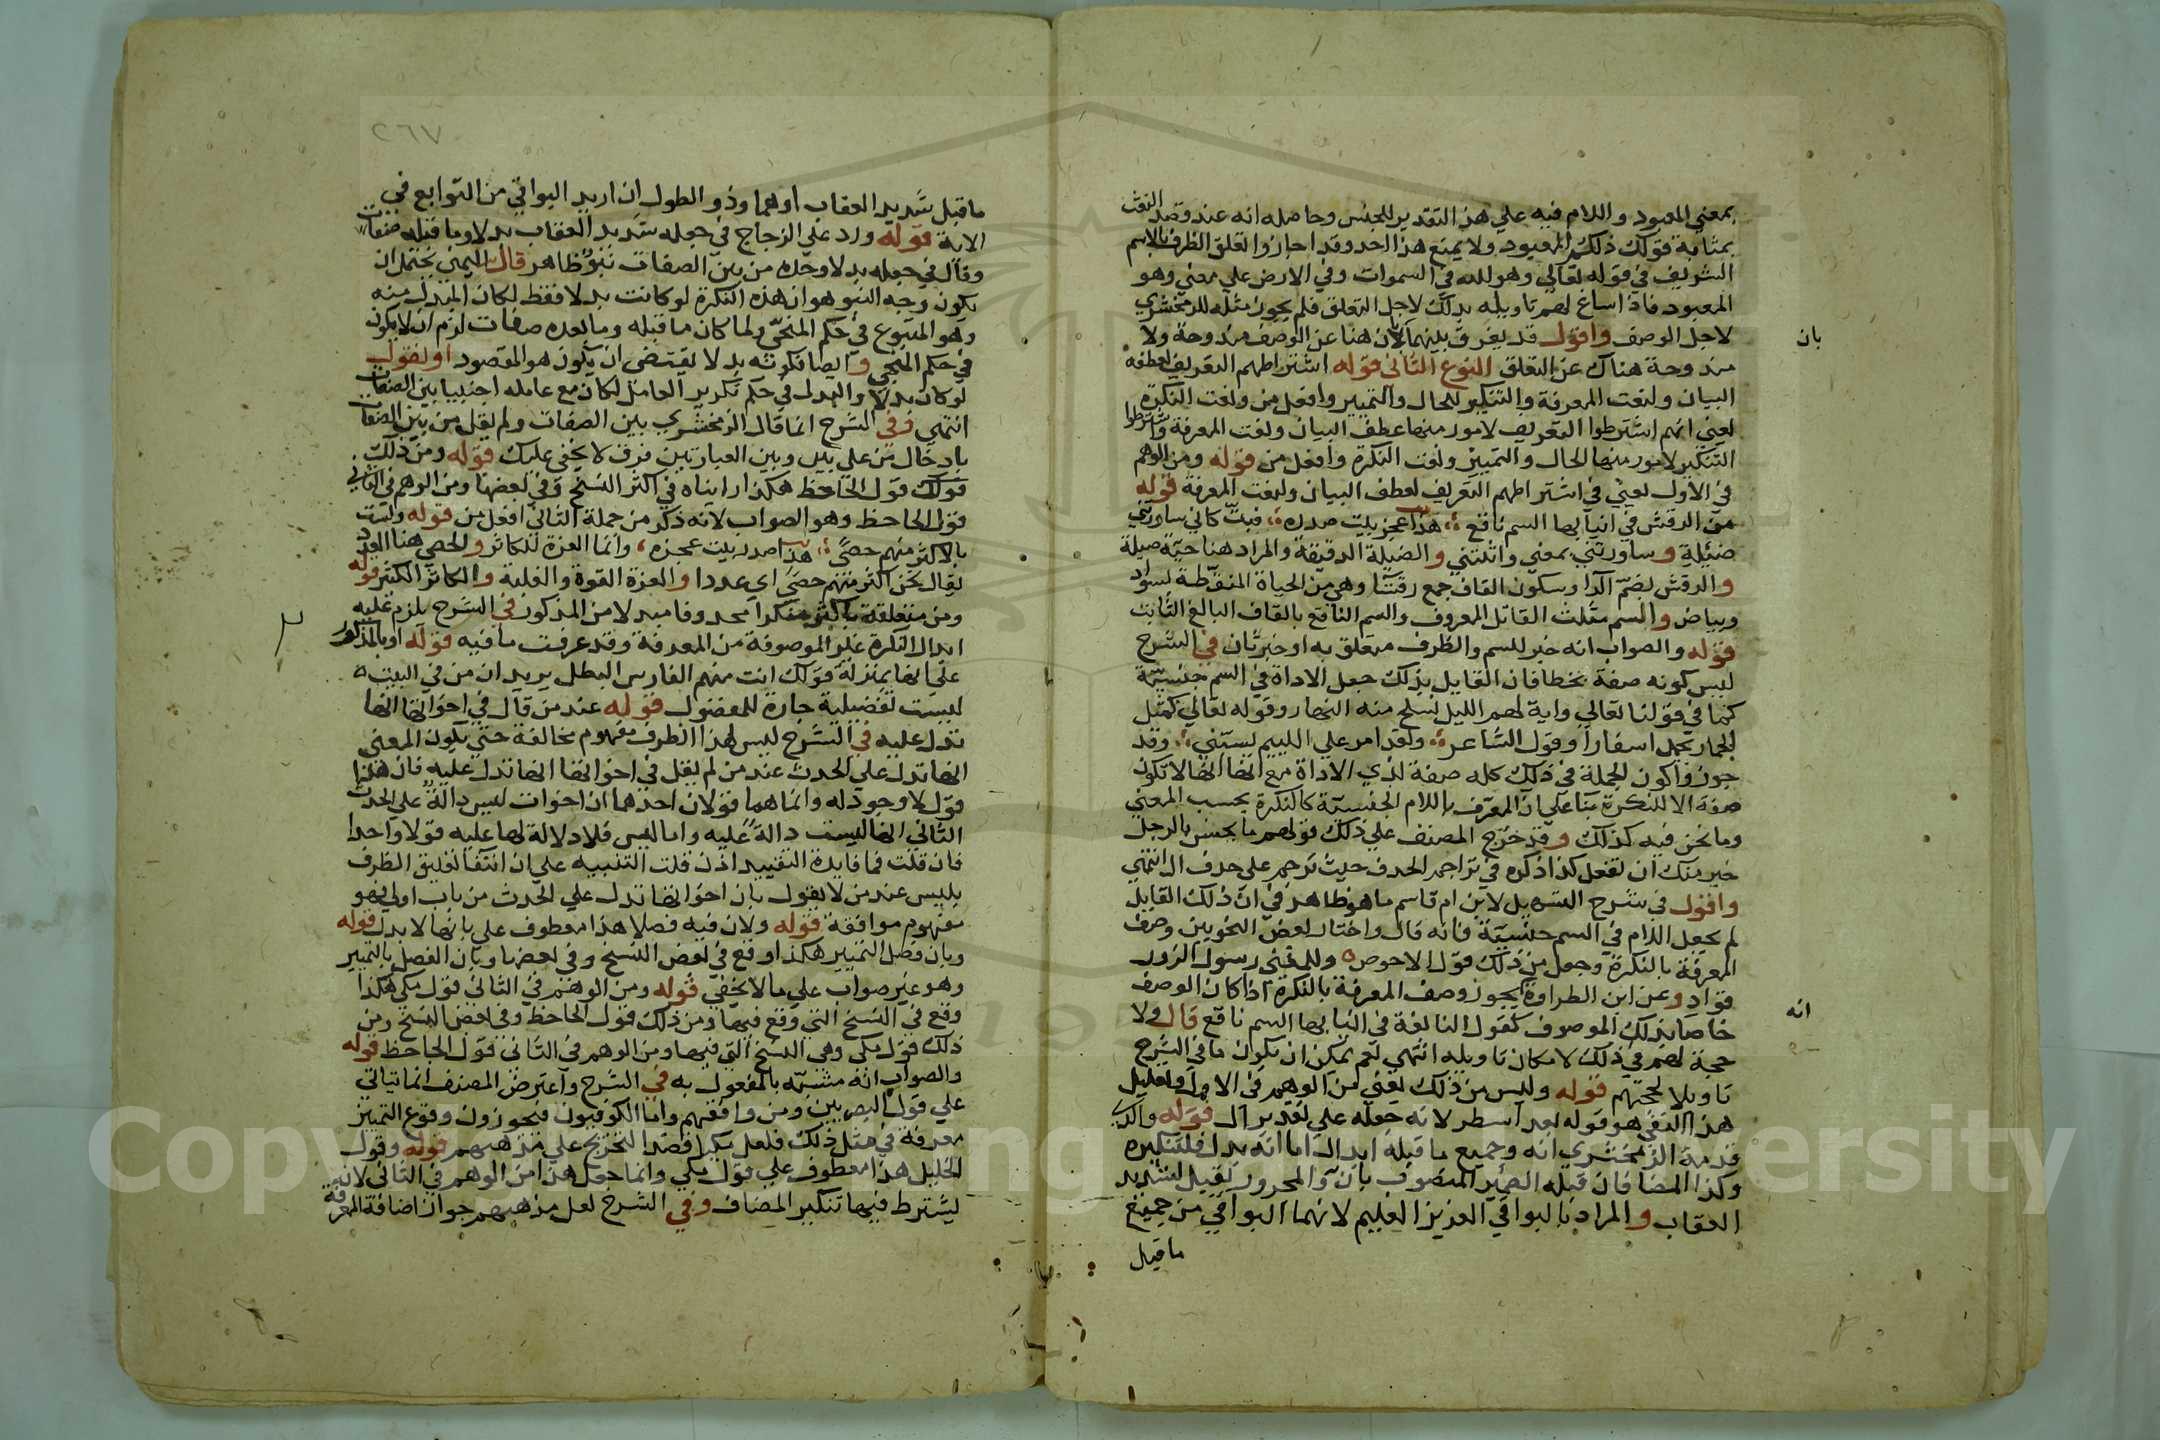 بمعني المعبود واللام فيه علي هذا التقدير للجنس وحاصله انه عند وقصد النعت
بمثابة قولك ذلكم المعبود ولا يمنع هذا احد وقد اجازوا تعلق الظرف بالاسم
الشريف في قوله تعالي وهو الله في السموات وفي الارض علي معني وهو
المعبود فاذا ساغ لهم تاويله بذلك لاجل التعلق فلم يجوز مثله للزمخشري
لاجل الوصف واقول قد يفرق بينهما بان هنا عن الوصف مندوحة ولا
مندوحة هناك عن التعلق النوع الثاني قوله اشتراطهم التعريف لعطف
البيان ولنعت المعرفة والتنكير للحال والتمييز وافعل من ونعت النكرة
يعني انهم اشترطوا التعريف لامور منها عطف البيان ونعت المعرفة واشترطوا
التنكير لامور منها الحال والتمييز ونعت النكرة وافعل من قوله ومن الوهم
في الاول يعني في اشتراطهم التعريف لعطف البيان ولنعت المعرفة قوله
من الرقش في انيابها السم ناقع هذا عجز بيت صدره فبت كاني ساورتني
ضئيلة وساورتني بمعني واثبتني والضيلة الدقيقة والمراد هنا حية صيلة
والرقش بضم الرا وسكون القاف جمع رقشا وهي من الحياة المنقطة بسواد
وبياض والسم مثلث القاتل المعروف والسم الناقع بالقاف البالغ الثابت
قوله والصواب انه خبر للسم والظرف متعلق به او خبر ثان في الشرح
ليس كونه صفة بخطا فان القايل بذلك جعل الاداة في السم جنسية
كما في قولنا تعالي واية لهم الليل نسلخ منه النهار وقوله تعالي كمثل
الحمار يحمل اسفارا وقول الشاعر ولقد امر علي اللييم يسبني وقد
جوزوا كون الجملة في ذلك كله صفة لذي الاداة مع انها لا تكون
صفة الا للنكرة بنا علي ان المعرف باللام الجنسية كالنكرة بحسب المعني
وما نحن فيه كذلك وقد خرج المصنف علي ذلك قولهم ما يحسن بالرجل
خير منك ان تفعل كذا ذكره في تراجم الحذف حيث ترجم علي حذف ال انتهي
واقول في شرح التسهيل لابن ام قاسم ما هو ظاهر في ان ذلك القايل
لم يجعل اللام في السم جنسية فانه قال واختار بعض النحويين وصف
المعرفة بالنكرة وجعل من ذلك قول الاحوص وللمغني رسول الزور
قواد وعن ابن الطراوة انه يجوز وصف المعرفة بالنكرة اذا كان الوصف
خاصا بذلك الموصوف كقول النابغة في انيابها السم ناقع قال ولا
حجة لهم في ذلك لامكان تاويله انتهي نعم يمكن ان يكون ما في الشرح
تاويلا لحجتهم قوله وليس من ذلك يعني من الوهم في الاول وتعليل
هذا النفي هو قوله بعد اسطر لانه جعله علي تقدير ال قوله والذي
قدمه الزمخشري انه وجميع ما قبله ابدال اما انه بدل فلتنكيره
وكذا المضافان قبله الضمير المنصوب بان والمجرور بقيل لشديد
العقاب والمراد بالبواقي العزيز العليم لانهما البواقي من جميع
ما قبل
بان
انه
٢٦٧
ما قبل شديد العقاب او هما وذو الطول ان اريد البواقي من التوابع في
الاية قوله ورد علي الزجاج في جعله شديد العقاب بدلا وما قبله صفات
وقال في جعله بدلا وحده من بين الصفات نبو ظاهر قال اليمني يحتمل ان
يكون وجه النبو هو ان هذه النكرة لو كانت بدلا فقط لكان المبدل منه
وهو المتبوع في حكم المنحي ولما كان ما قبله وما بعده صفات لزم ان لا يكون
في حكم المنحي وايضا فكونه بدلا يقتضي ان يكون هو المقصود او نقول
لو كان بدلا والبدل في حكم تكرير العامل لكان مع عامله اجنبيا بين الصفات
انتهي وفي الشرح انما قال الزمخشري بين الصفات ولم يقل من بين الصفات
بادخال من علي بين وبين العبارتين فرق لا يخفي عليك قوله ومن ذلك
قولك قول الجاحظ هكذا رايناه في اكثر النسخ وفي بعضها ومن الوهم في الثاني
قول الجاحظ وهو الصواب لانه ذكر من جملة الثاني افعل من قوله ولست
بالاكثر منهم حصي هذا صدر بيت عجزه وانما العزة للكاثر والحصي هنا العدد
يقال نحن اكثر منهم حصي اي عددا والعزة القوة والغلبة والكاثر الكثير قوله
ومن متعلقة باكثر منكرا محذوفا مبدلا من المذكور في الشرح يلزم عليه
ابدال النكرة غير الموصوفة من المعرفة وقد عرفت ما فيه قوله او بالمذكور
علي انها بمنزلة قولك انت منهم الفارس البطل يريد ان من في البيت
ليست تفضيلية جارة للمفضول قوله عند من قال في اخواتها انها
تدل عليه في الشرح ليس لهذا الظرف مفهوم مخالفة حتي يكون المعني
انها تدل علي الحدث عند من لم يقل في اخواتها انها تدل عليه فان هذا
قول لا وجود له وانما هما قولان احدهما ان اخوات ليس دالة علي الحدث
الثاني انها ليست دالة عليه واما ليس فلا دلالة لها عليه قولا واحدا
فان قلت فما فايدة التقييد اذن قلت التنبيه علي ان انتفا تعليق الظرف
بليس عند من لا يقول بان اخواتها تدل علي الحدث من باب اولي فهو
مفهوم موافقة قوله ولان فيه فصلا هذا معطوف علي بانها لا بدل قوله
وبان فصل التمييز هكذا وقع في بعض النسخ وفي بعضها وبان الفصل بالتمييز
وهو غير صواب علي ما لا يخفي قوله ومن الوهم في الثاني قول مكي هكذا
وقع في النسخ التي وقع فيها ومن ذلك قول الجاحظ وفي بعض النسخ ومن
ذلك قول مكي وهي النسخ التي فيها ومن الوهم في الثاني قول الجاحظ قوله
والصواب انه مشبه بالمفعول به في الشرح واعترض المصنف انما يتاتي
علي قول البصريين ومن وافقهم واما الكوفيون فيجوزون وقوع التمييز
معرفة في مثل ذلك فلعل مكيا قصد التخريج علي مذهبهم قوله وقول
الخليل هذا معطوف علي قول مكي وانما جعل هذا من الوهم في الثاني لانه
يشترط فيها تنكير المضاف وفي الشرح لعل مذهبهم جواز اضافة المعرفة
Copyright © King Saud University